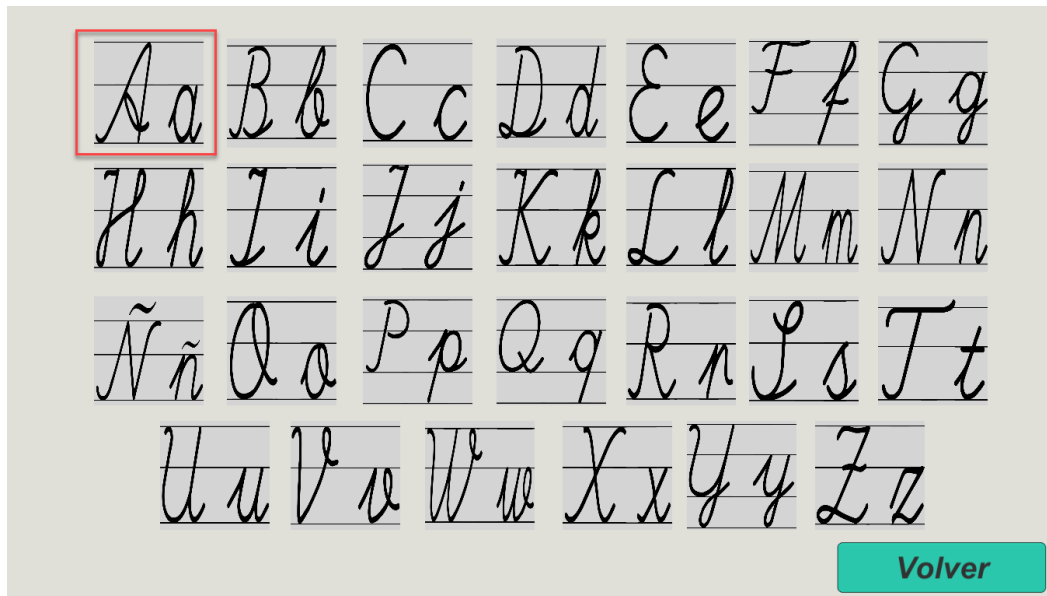 Aa Bb Cc Dd Ee Ff Gg
Hh Ii Jj Kk Ll Mm Nn
Ññ Oo Pp Qq Rr Ss Tt
Uu Vv Ww Xx Yy Zz
Volver